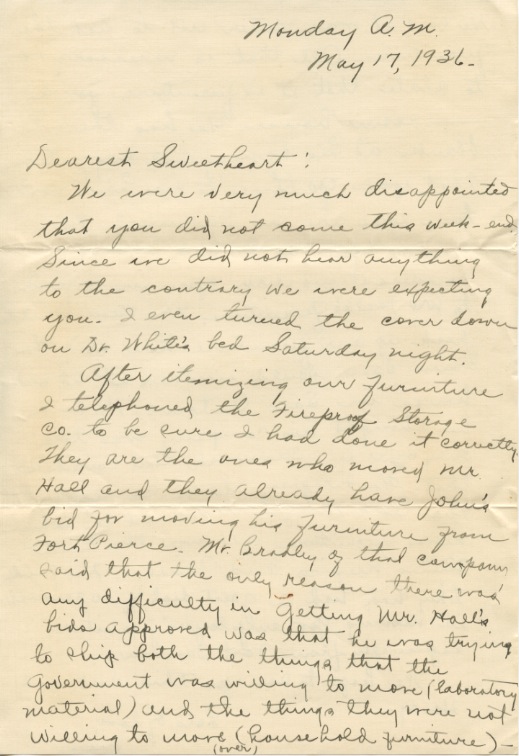 Monday A.M.
May 17, 1936.
Dearest Sweetheart:
We were very much disappointed
that you did not come this week-end.
Since we did not hear anything
to the contrary we were expecting
you. I even turned the cover down
on Dr. White's bed Saturday night.
After itemizing our furniture
I telephoned the Fireproof Storage
Co. to be sure I had done it correctly.
They are the ones who moved Mr.
Hall and they already have John's
bid for moving his furniture from
Fort Pierce. Mr. Bradley of that company
said that the only reason there was
any difficulty in getting Mr. Hall's
bids approved was that he was trying
to ship both the things that the
Government was willing to move (laboratory
material) and the things they were not
willing to move (household furniture)—
(over)